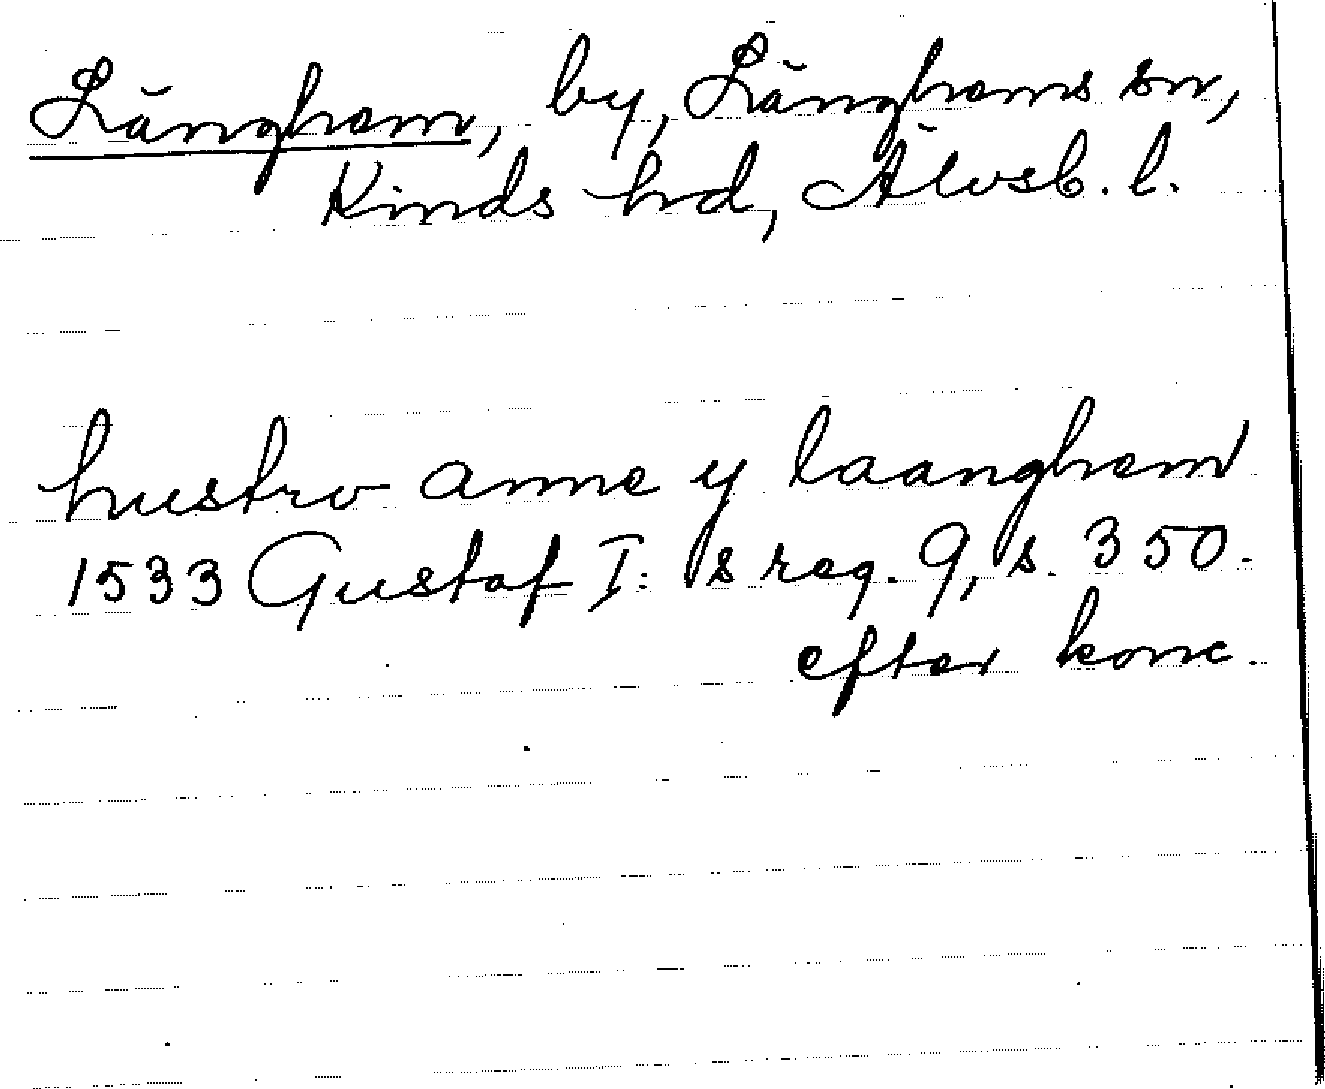 Länghem, by, Länghems sn,
Kinds hd, Älvsb. l.
hustro anne y laanghem
1533 Gustaf I:s reg. 9, s. 350.
efter konc.